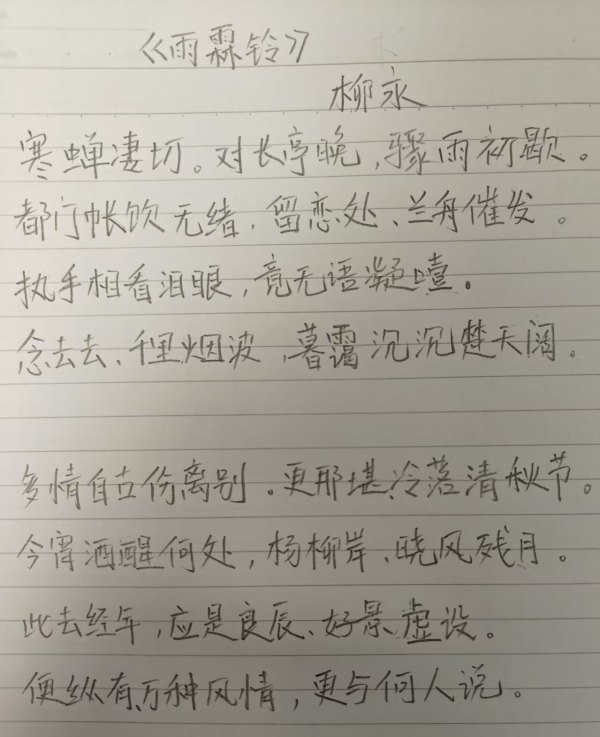 《雨霖铃》
柳永
寒蝉凄切。对长亭晚,骤雨初歇。
都门帐饮无绪,留恋处、兰舟催发。
执手相看泪眼,竟无语凝噎。
念去去、千里烟波,暮霭沉沉楚天阔。
多情自古伤离别。更那堪、冷落清秋节。
今宵酒醒何处,杨柳岸、晓风残月。
此去经年,应是良辰、好景虚设。
便纵有、万种风情,更与何人说。